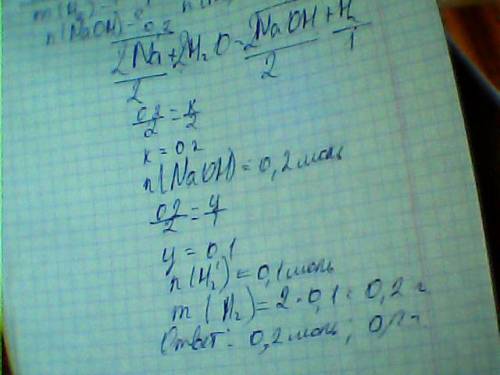 m(H₂)
n(NaOH)=0,2
0,2
2Na+2H₂O=2NaOH+H₂
2 2 1
0,2/2=x/2
x=0,2
n(NaOH)=0,2 моль
0,2/2=y/1
y=0,1
n(H₂)=0,1 моль
m(H₂)=2·0,1=0,2 г
Ответ: 0,2 моль;